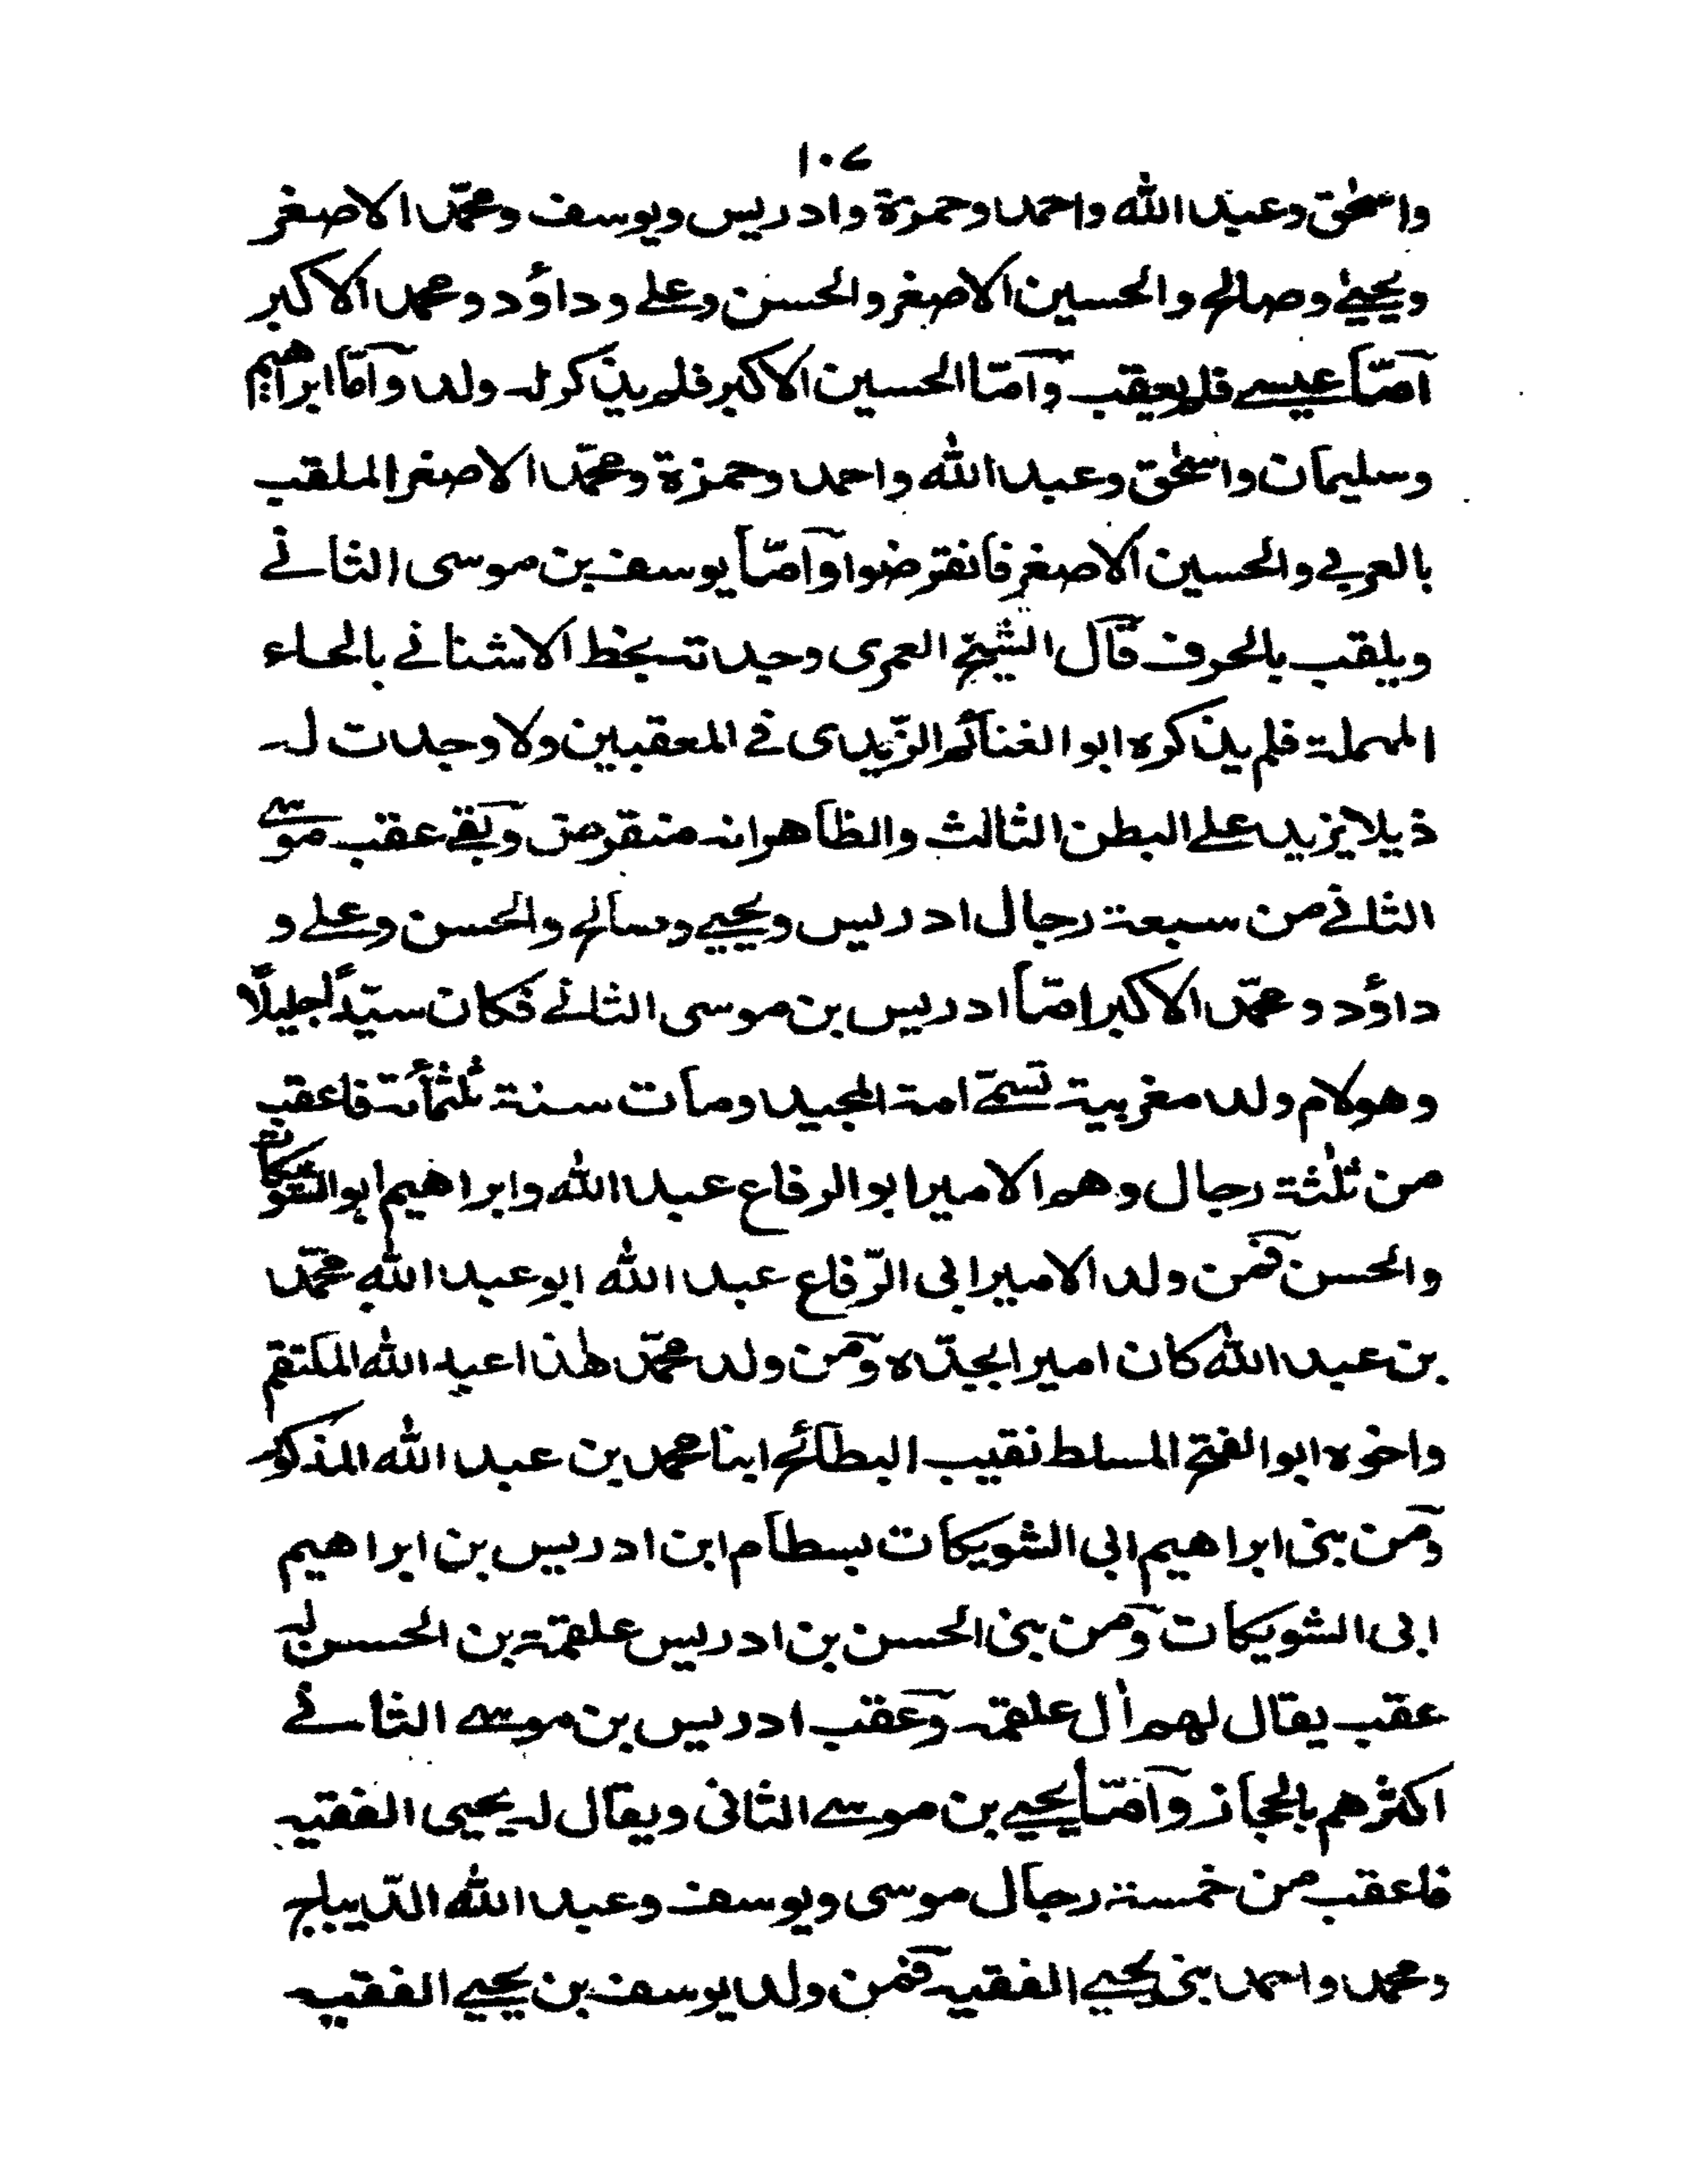 ١٠٧
واسحٰق وعبد الله واحمد وحمزة وادريس ويوسف ومحمّد الاصغر
ويحيىٰ وصالح والحسين الاصغر والحسن وعلے وداؤد ومحمد الاكبر
آمّا عيسے فلم يعقب وآمّا الحسين الاكبر فلم يذكر له ولد وآمّا ابراهيم
وسليمان واسحٰق وعبد الله واحمد وحمزة ومحمّد الاصغر الملقب
بالعربے والحسين الاصغر فانقرضوا وآمّا يوسف بن موسى الثانے
ويلقب بالحرف قال الشيخ العمرى وجدته بخط الاشنانے بالحاء
المهملة فلم يذكره ابو الغنائم الزّيدى فے المعقبين ولا وجدت له
ذيلا يزيد علے البطن الثالث والظاهر انه منقرض وبقے عقب موسے
الثانے من سبعة رجال ادريس ويحيے وصالح والحسن وعلے و
داؤد ومحمّد الاكبر امّا ادريس بن موسى الثانے فكان سيّدًا جليلًا
وهو لام ولد مغربية تسمّے امة المجيد ومات سنة ثلثمائة فاعقب
من ثلٰثة رجال وهم الامير ابو الرفاع عبد الله وابراهيم ابو الشويكات
والحسن فمن ولد الامير ابى الرّفاع عبد الله ابو عبد الله محمّد
بن عبد الله كان امير الجدّه ومن ولد محمّد هٰذا عبد الله المكتقم
واخوه ابو الفتح المسلط نقيب البطائح ابنا محمد بن عبد الله المذكور
ومن بنى ابراهيم ابى الشويكات بسطام ابن ادريس بن ابراهيم
ابى الشويكات ومن بنى الحسن بن ادريس علقمة بن الحسن له
عقب يقال لهم اٰل علقمه وعقب ادريس بن موسے الثانے
اكثرهم بالحجاز وآمّا يحيے بن موسے الثانى ويقال له يحيى الفقيه
فاعقب من خمسة رجال موسى ويوسف وعبد الله الدّيباج
ومحمد واحمد بنى يحيے الفقيه فمن ولد يوسف بن يحيے الفقيه